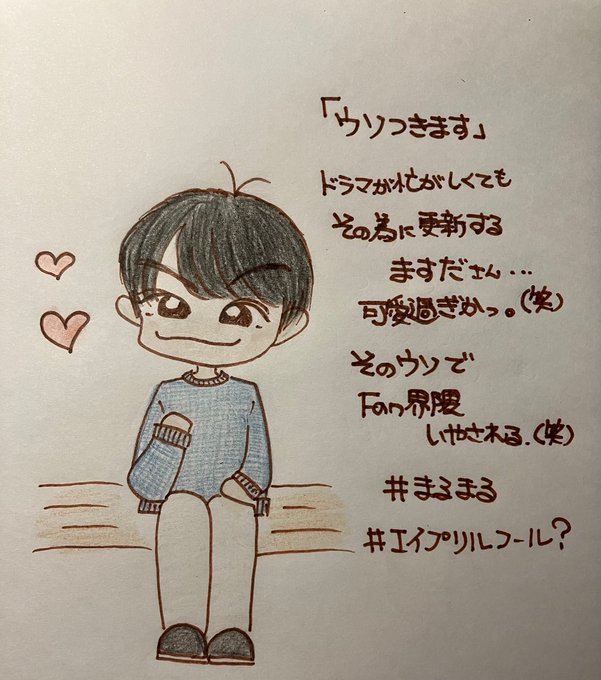 「ウソつきます」
ドラマが忙がしくても
その為に更新する
ますださん…
可愛過ぎかっ。(笑)
そのウソで
Fan界隈
いやされる.(笑)
#まるまる
#エイプリルフール?